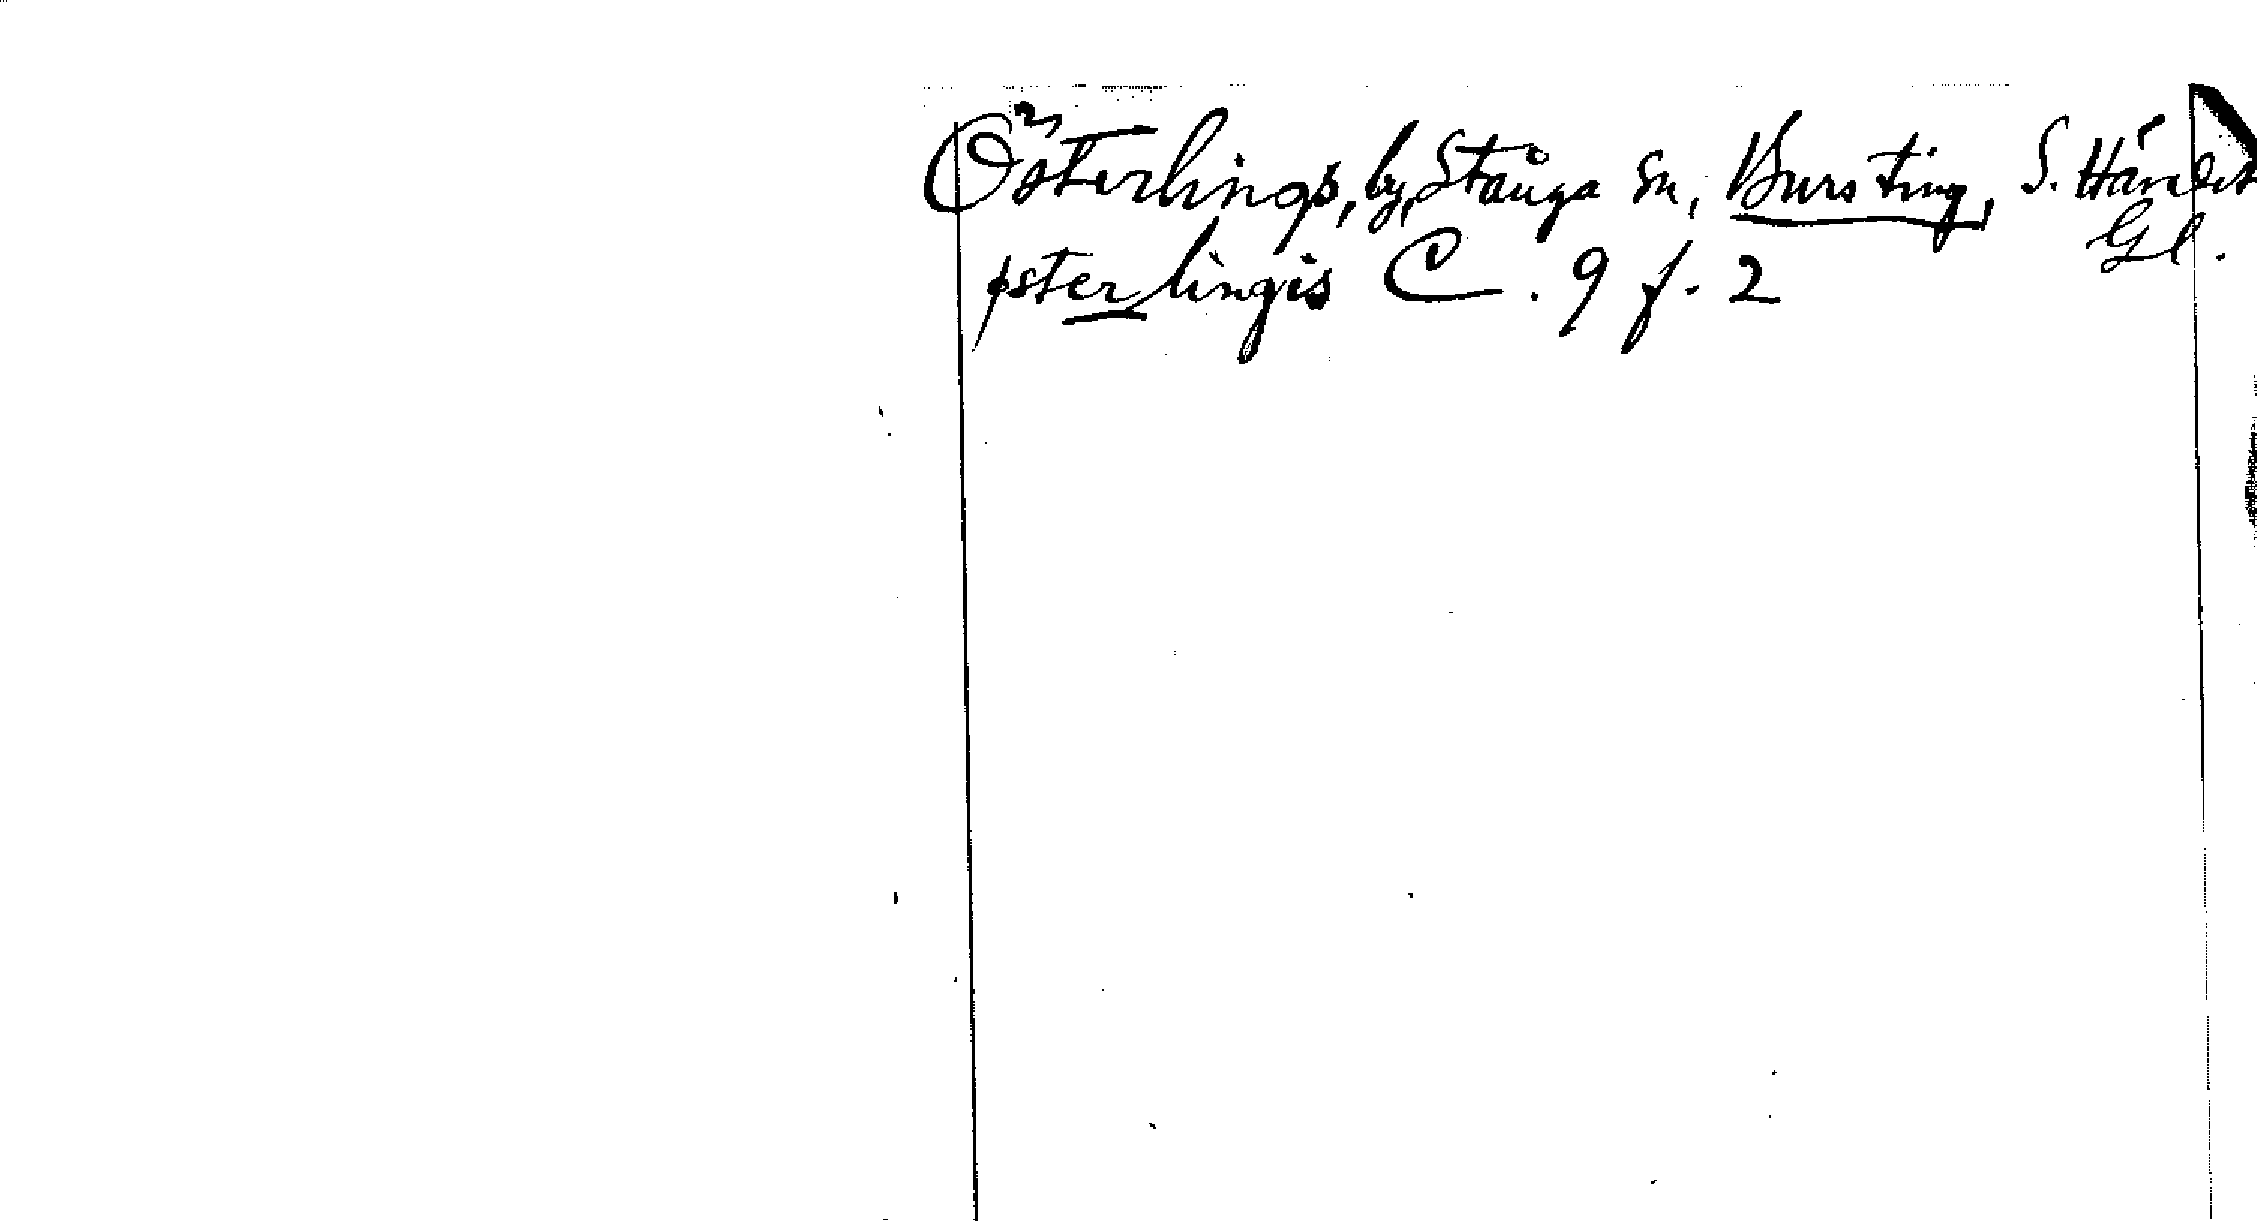 Österlings, by, Stånga sn, Burs ting, S. Häradet
Gl.
østerlingis C. 9 f. 2